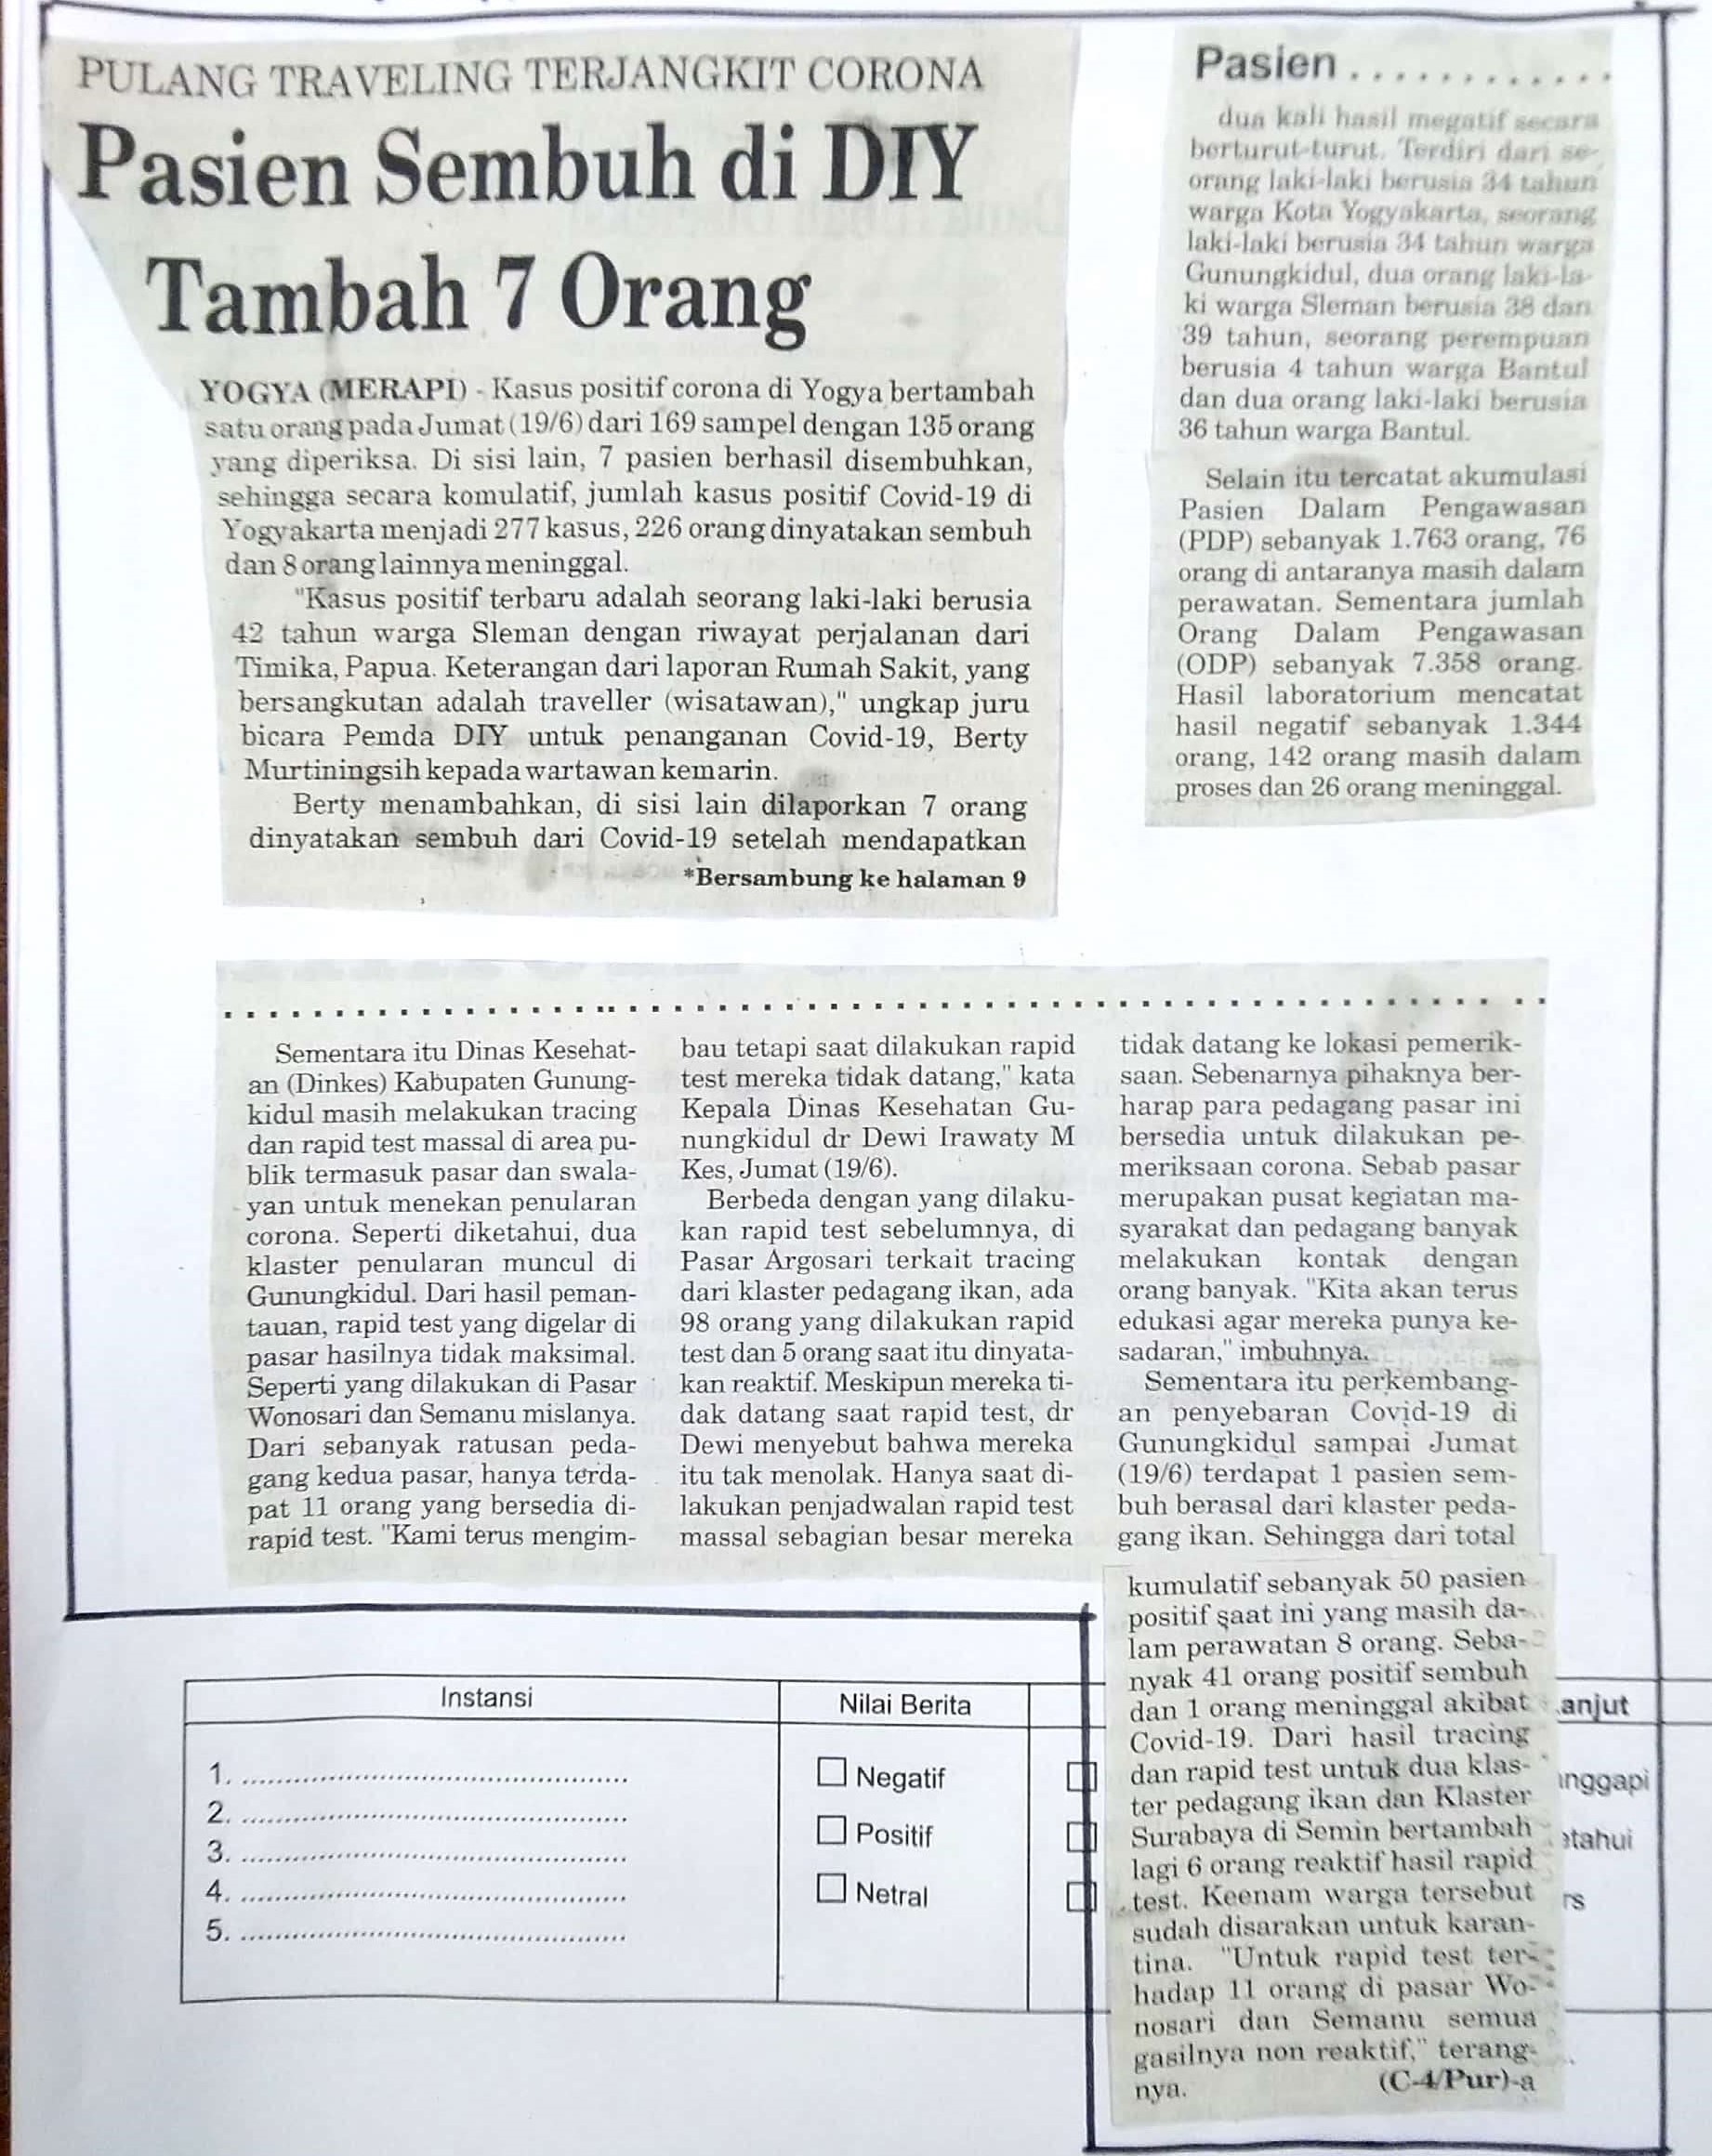 PULANG TRAVELING TERJANGKIT CORONA
Pasien Sembuh di DIY
Tambah 7 Orang
YOGYA (MERAPI) - Kasus positif corona di Yogya bertambah
satu orang pada Jumat (19/6) dari 169 sampel dengan 135 orang
yang diperiksa. Di sisi lain, 7 pasien berhasil disembuhkan,
sehingga secara komulatif, jumlah kasus positif Covid-19 di
Yogyakarta menjadi 277 kasus, 226 orang dinyatakan sembuh
dan 8 orang lainnya meninggal.
"Kasus positif terbaru adalah seorang laki-laki berusia
42 tahun warga Sleman dengan riwayat perjalanan dari
Timika, Papua. Keterangan dari laporan Rumah Sakit, yang
bersangkutan adalah traveller (wisatawan)," ungkap juru
bicara Pemda DIY untuk penanganan Covid-19, Berty
Murtiningsih kepada wartawan kemarin.
Berty menambahkan, di sisi lain dilaporkan 7 orang
dinyatakan sembuh dari Covid-19 setelah mendapatkan
*Bersambung ke halaman 9
Pasien ............
dua kali hasil megatif secara
berturut-turut. Terdiri dari se-
orang laki-laki berusia 34 tahun
warga Kota Yogyakarta, seorang
laki-laki berusia 34 tahun warga
Gunungkidul, dua orang laki-la-
ki warga Sleman berusia 38 dan
39 tahun, seorang perempuan
berusia 4 tahun warga Bantul
dan dua orang laki-laki berusia
36 tahun warga Bantul.
Selain itu tercatat akumulasi
Pasien Dalam Pengawasan
(PDP) sebanyak 1.763 orang, 76
orang di antaranya masih dalam
perawatan. Sementara jumlah
Orang Dalam Pengawasan
(ODP) sebanyak 7.358 orang.
Hasil laboratorium mencatat
hasil negatif sebanyak 1.344
orang, 142 orang masih dalam
proses dan 26 orang meninggal.
Sementara itu Dinas Kesehat-
an (Dinkes) Kabupaten Gunung-
kidul masih melakukan tracing
dan rapid test massal di area pu-
blik termasuk pasar dan swala-
yan untuk menekan penularan
corona. Seperti diketahui, dua
klaster penularan muncul di
Gunungkidul. Dari hasil peman-
tauan, rapid test yang digelar di
pasar hasilnya tidak maksimal.
Seperti yang dilakukan di Pasar
Wonosari dan Semanu mislanya.
Dari sebanyak ratusan peda-
gang kedua pasar, hanya terda-
pat 11 orang yang bersedia di-
rapid test. "Kami terus mengim-
bau tetapi saat dilakukan rapid
test mereka tidak datang," kata
Kepala Dinas Kesehatan Gu-
nungkidul dr Dewi Irawaty M
Kes, Jumat (19/6).
Berbeda dengan yang dilaku-
kan rapid test sebelumnya, di
Pasar Argosari terkait tracing
dari klaster pedagang ikan, ada
98 orang yang dilakukan rapid
test dan 5 orang saat itu dinyata-
kan reaktif. Meskipun mereka ti-
dak datang saat rapid test, dr
Dewi menyebut bahwa mereka
itu tak menolak. Hanya saat di-
lakukan penjadwalan rapid test
massal sebagian besar mereka
tidak datang ke lokasi pemerik-
saan. Sebenarnya pihaknya ber-
harap para pedagang pasar ini
bersedia untuk dilakukan pe-
meriksaan corona. Sebab pasar
merupakan pusat kegiatan ma-
syarakat dan pedagang banyak
melakukan kontak dengan
orang banyak. "Kita akan terus
edukasi agar mereka punya ke-
sadaran," imbuhnya.
Sementara itu perkembang-
an penyebaran Covid-19 di
Gunungkidul sampai Jumat
(19/6) terdapat 1 pasien sem-
buh berasal dari klaster peda-
gang ikan. Sehingga dari total
kumulatif sebanyak 50 pasien
positif saat ini yang masih da-
lam perawatan 8 orang. Seba-
nyak 41 orang positif sembuh
dan 1 orang meninggal akibat
Covid-19. Dari hasil tracing
dan rapid test untuk dua klas-
ter pedagang ikan dan Klaster
Surabaya di Semin bertambah
lagi 6 orang reaktif hasil rapid
test. Keenam warga tersebut
sudah disarakan untuk karan-
tina. "Untuk rapid test ter-
hadap 11 orang di pasar Wo-
nosari dan Semanu semua
gasilnya non reaktif," terang-
nya.
(C-4/Pur)-a
Instansi
1. ..........
2. ..........
3. ..........
4. ..........
5. ..........
Nilai Berita
Negatif
Positif
Netral
anjut
nggapi
etahui
rs